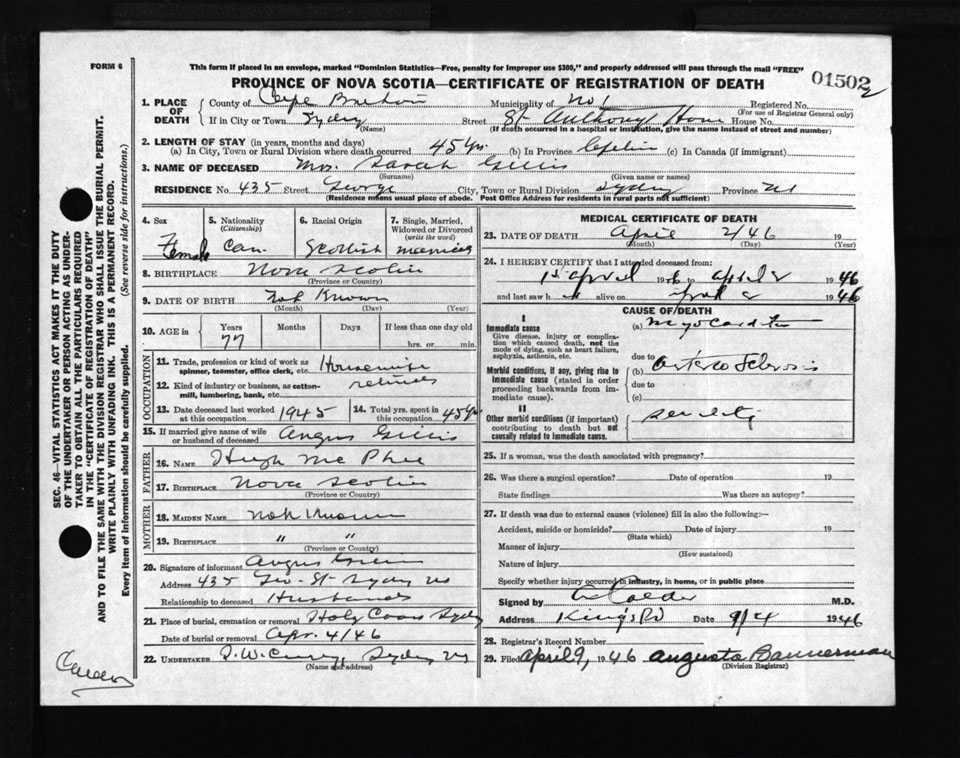 FORM 6
This form if placed in an envelope, marked "Dominion Statistics—Free, penalty for improper use $300," and properly addressed will pass through the mail "FREE"
PROVINCE OF NOVA SCOTIA—CERTIFICATE OF REGISTRATION OF DEATH
01502
SEC. 46—VITAL STATISTICS ACT MAKES IT THE DUTY
OF THE UNDERTAKER OR PERSON ACTING AS UNDER-
TAKER TO OBTAIN ALL THE PARTICULARS REQUIRED
IN THE "CERTIFICATE OF REGISTRATION OF DEATH"
AND TO FILE THE SAME WITH THE DIVISION REGISTRAR WHO SHALL ISSUE THE BURIAL PERMIT.
WRITE PLAINLY WITH UNFADING INK. THIS IS A PERMANENT RECORD.
Every item of information should be carefully supplied. (See reverse side for instructions.)
1. PLACE OF DEATH
County of Cape Breton Municipality of No 1 Registered No.
(For use of Registrar General only)
If in City or Town Sydney Street St Anthony Home House No.
(Name) (If death occurred in a hospital or institution, give the name instead of street and number)
2. LENGTH OF STAY (in years, months and days)
(a) In City, Town or Rural Division where death occurred 45 Yrs. (b) In Province (c) In Canada (if immigrant)
3. NAME OF DECEASED Mrs. Sarah Gillis
(Surname) (Given name or names)
RESIDENCE No. 435 Street George City, Town or Rural Division Sydney Province NS
(Residence means usual place of abode. Post Office Address for residents in rural parts not sufficient)
4. Sex Female
5. Nationality (Citizenship) Can.
6. Racial Origin Scottish
7. Single, Married, Widowed or Divorced (write the word) married
8. BIRTHPLACE Nova Scotia
(Province or Country)
9. DATE OF BIRTH Not Known
(Month) (Day) (Year)
10. AGE in Years Months Days If less than one day old
77 hrs. or min.
OCCUPATION
11. Trade, profession or kind of work as spinner, teamster, office clerk, etc. Housewife
12. Kind of industry or business, as cotton-mill, lumbering, bank, etc. retired
13. Date deceased last worked at this occupation 1945
14. Total yrs. spent in this occupation 45 Yrs
15. If married give name of wife or husband of deceased Angus Gillis
FATHER
16. NAME Hugh McPhee
17. BIRTHPLACE Nova Scotia
(Province or Country)
MOTHER
18. MAIDEN NAME Not Known
19. BIRTHPLACE " "
(Province or Country)
20. Signature of informant Angus Gillis
Address 435 Geo. St. Sydney NS
Relationship to deceased Husband
21. Place of burial, cremation or removal Holy Cross Sydney
Date of burial or removal Apr. 4/46
22. UNDERTAKER Sydney NS
(Name and address)
MEDICAL CERTIFICATE OF DEATH
23. DATE OF DEATH April 2/46 19
(Month) (Day) (Year)
24. I HEREBY CERTIFY that I attended deceased from:
1st April 1946 to April 2 1946
and last saw h er alive on April 2 1946
CAUSE OF DEATH
I
Immediate cause
Give disease, injury or complication which caused death, not the mode of dying, such as heart failure, asphyxia, asthenia, etc.
(a) Myocarditis
due to
Morbid conditions, if any, giving rise to immediate cause (stated in order proceeding backwards from immediate cause).
(b) Arterio Sclerosis
due to
(c)
II
Other morbid conditions (if important) contributing to death but not causally related to immediate cause.
senility
25. If a woman, was the death associated with pregnancy?
26. Was there a surgical operation? Date of operation 19
State findings Was there an autopsy?
27. If death was due to external causes (violence) fill in also the following:—
Accident, suicide or homicide? Date of injury 19
(State which)
Manner of injury
(How sustained)
Nature of injury
Specify whether injury occurred in industry, in home, or in public place
Signed by Calder M.D.
Address Kings Rd Date 9/4 1946
28. Registrar's Record Number
29. Filed April 9, 1946 Augusta Bannerman
(Division Registrar)